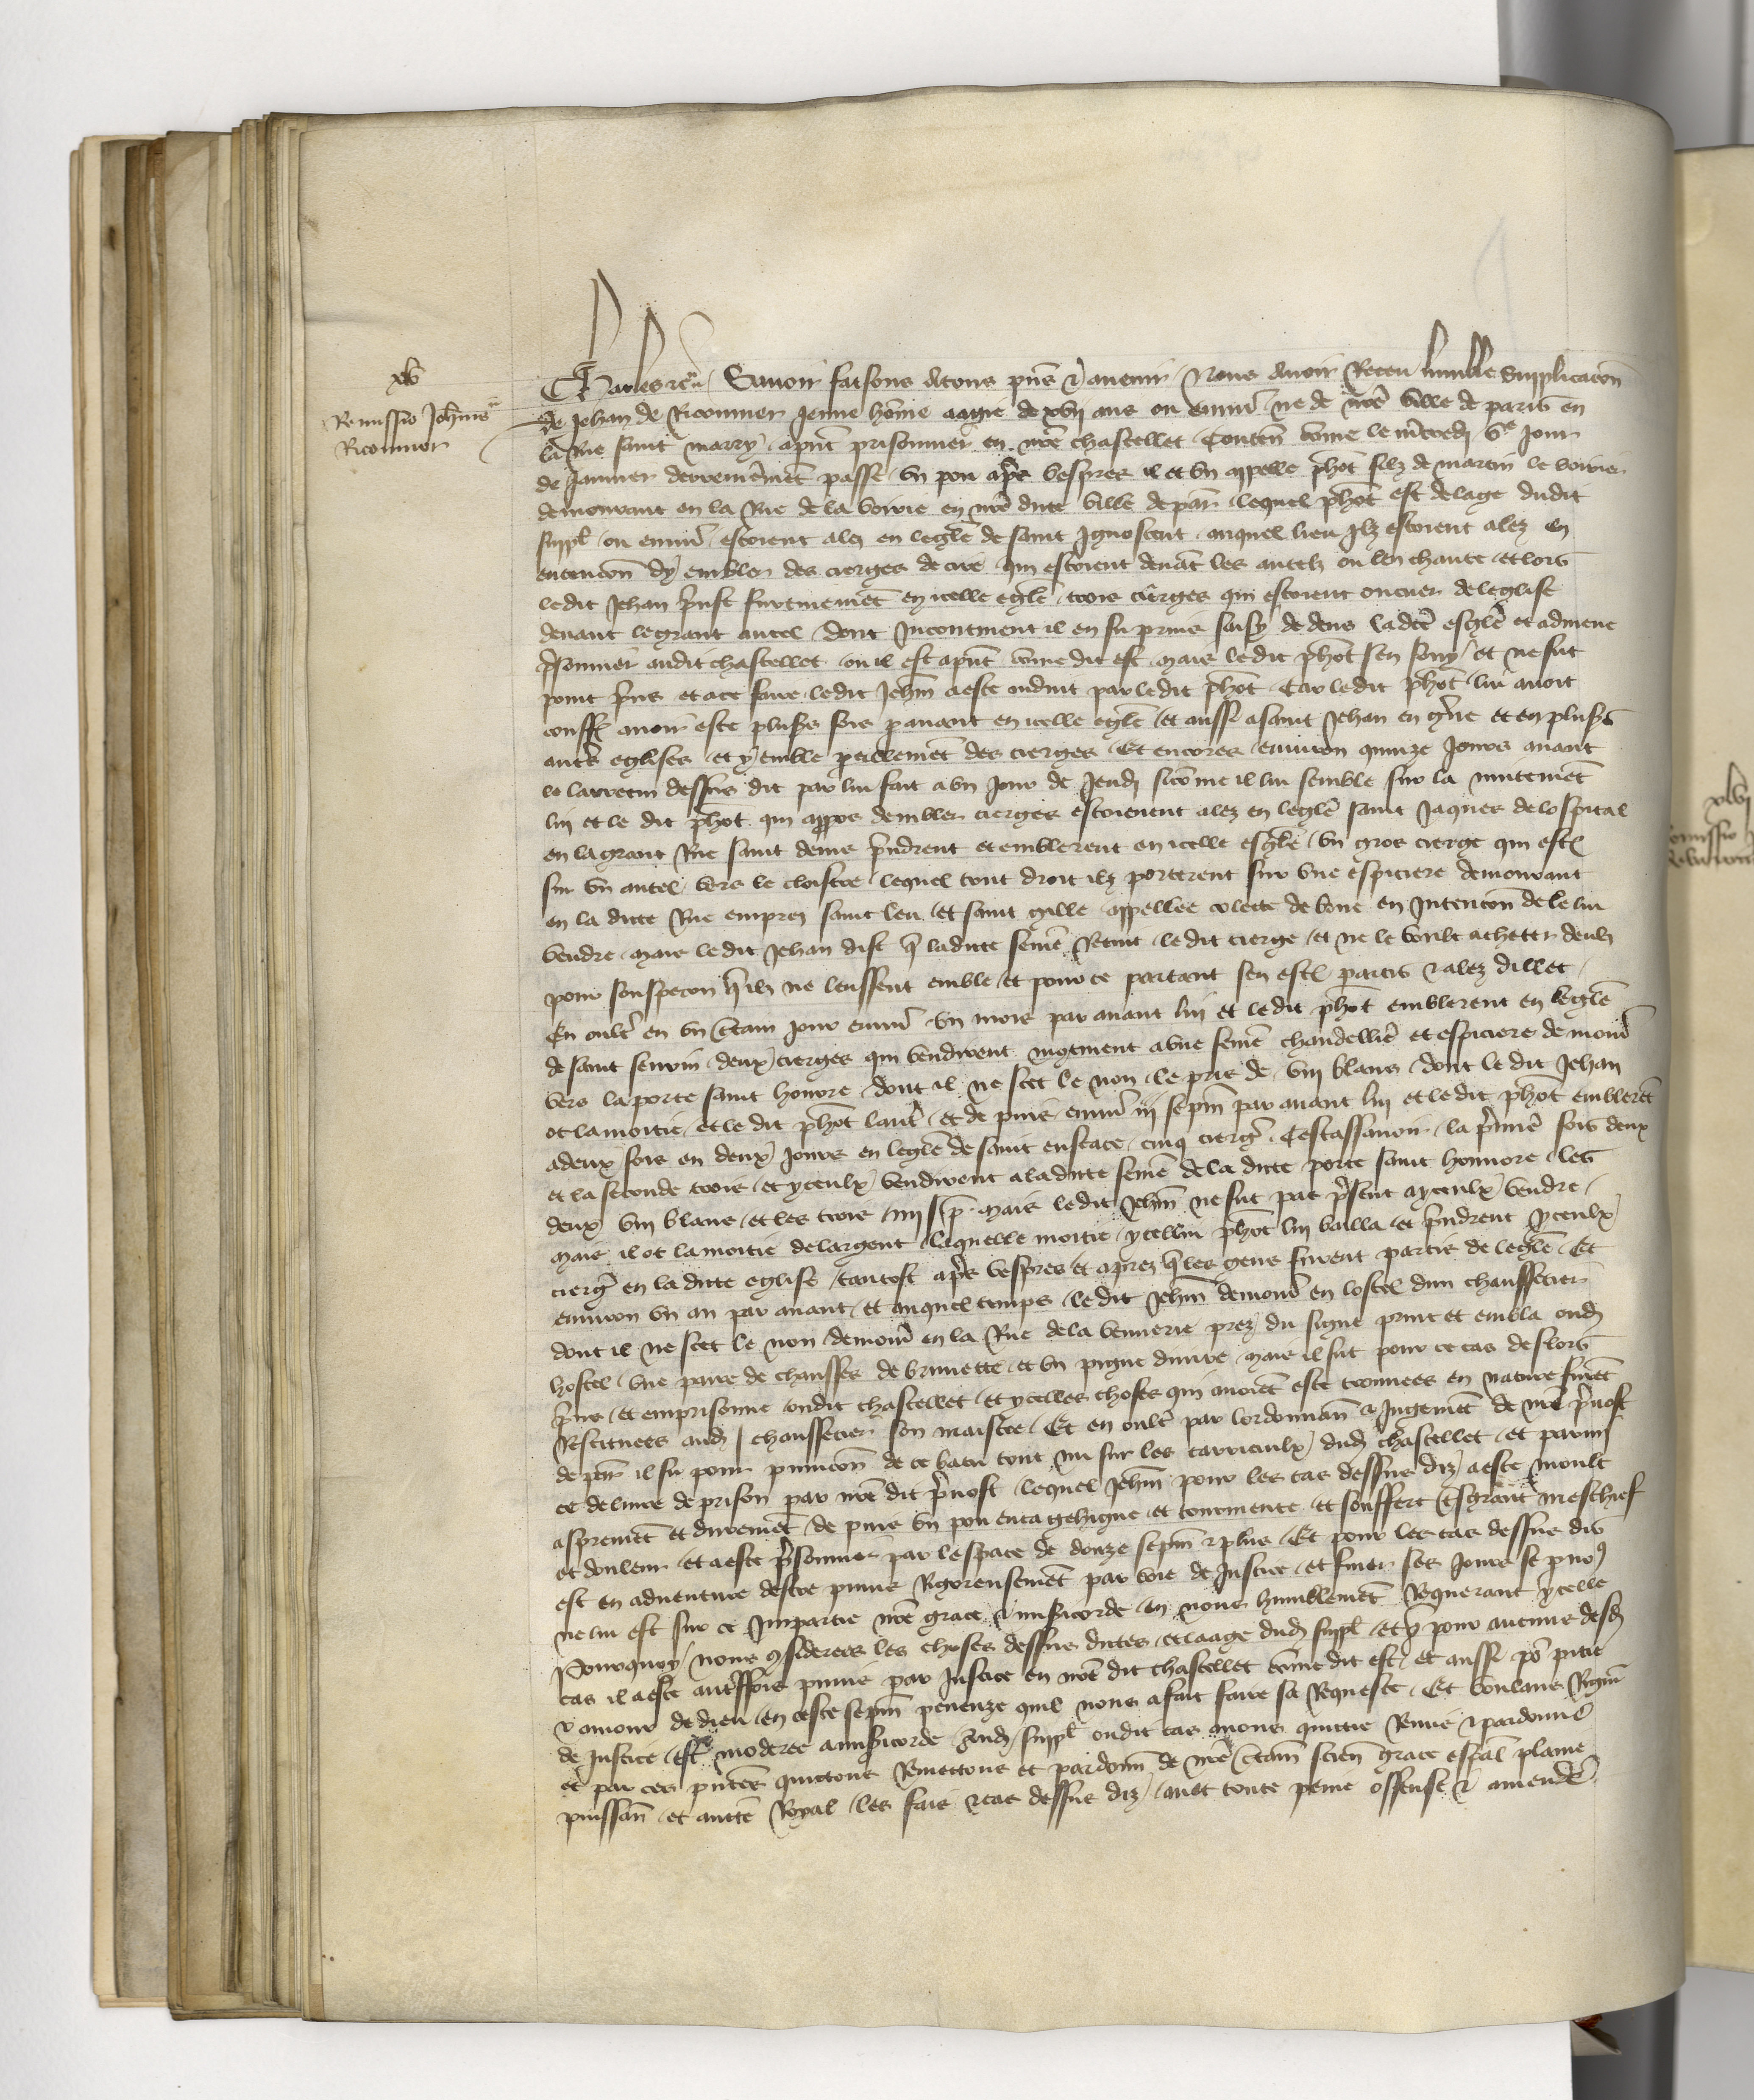 xlv
Remissio Johannis
Ricouuer
Charles etc. Savoir faisons a tous pns et avenir Nous avoir Receu humble Supplicacon
de Jehan de Ricouuer jeune home aagie de xvij ans ou envir ne de nre ville de paris en
la Rue saint marry apnt prisonnier en nre chastellet Conten come le mcredi vᵉ jour
de Janvier derrenierement passe un pou aps vespres il et un appelle phot filz de martin le voirier
demourant en la Rue de la voirie en nre dicte ville de par lequel phot est de lage dudit
suppl ou envir estoient alez en legle de saint Ignoscent auquel lieu Ilz estoient alez en
entencon dy embler des cierges de cire qui estoient devat les autelz ou len chante et lors
ledit Jehan prist furtivemet en icelle egle trois cierges qui estoient ou cuer de leglise
devant le grant autel dont Incontinent il en fu prins saisy dedens la dce esgle et admene
prsonnier audit chastellet ou il est apnt come dit est mais ledit phot sen fouy et ne fut
point prins et a ce faire ledit Jehan a este enduit par ledit phot Car ledit phot lui avoit
confesse avoir este plusrs fois par avant en icelle egle et aussi a saint Jehan en gve et en plusrs
autrs eglises et y emble pareillemet des cierges Et encores environ quinze Jours avant
le larrecin dessus dit par lui fait a un Jour de Jeudi sicome il lui semble sur la nuitemet
lui et le dit phot qui appos dembler cierges estoienent alez en legle saint Jaques de lospital
en la grant Rue saint denis prindrent et emblerent en icelle esgle un gros cierge qui est
sur un autel vers le cloistre lequel tout droit ilz porterent sur une espiciere demourant
en la dicte Rue emprez saint leu et saint gille appellee colette de bone en Intencon de le lui
vendre mais ledit Jehan dist q ladicte feme Retint ledit cierge et ne le voult acheter deulz
pour souspecon quilz ne leussent emble et pour ce partant sen est partis et alez dillec
En oultre en un ctain jour envir un mois par avant lui et ledit phot emblerent en legle
de saint sevrin deux cierges qui vendirent a une feme chandelliere et espiciere demour
vers la porte saint honnore dont il ne scet le non le pris de viij blans dont ledit Jehan
ot la moitie et le dit phot laut et de puis envir iij sepm par avant lui et ledit phot emblerent
a deux fois en deux jours en legle de saint eustace cinq cierg Cestassavoir la pmiere fois deux
et la seconde trois et yceulx vendirent a ladicte feme de la dicte porte saint honnore les
deux viij blans et les trois iiij s. p. mais ledit Jehan ne fut pas prsent a yceulx vendre
mais il ot la moitie de largent laquelle moitie ycellui phot lui bailla et prindrent yceulx
cierg en la dicte eglise tantost aprs vespres et aprez q les gens furent partis de legle Et
environ un an par avant et auquel temps ledit Jehan demour en lostel dun chaussetier
dont il ne scet le non demour en la Rue de la vennerie prez du signe print et embla oudi
hostel une paire de chausses de brunette et un pigne divire mais il fut pour ce cas deslors
prins et emprisonne oudit chastellet et ycelles choses qui avoiet este trouvees en nature furet
Restituees audi chaussetier son maistre Et en oultre par lordonnan et Jugemet de nre prevost
de par il fu pour punicon de ce batu tout nu sur les carreaulx dudi chastellet et parmi
ce delivre de prison par nre dit prevost lequel Jehan pour les cas dessus diz a este moult
asprement et durement de puis un pou en ca gehigne et tourmente et souffert tresgrant meschief
et douleur et a este prsonnier par lespace de douze sepm et plus Et pour les cas dessus dis
est en adventure destre punis Rigoreusement par voie de Justice et finer ses jours se par nous
ne lui est sur ce Impartie nre grace et misicorde en nous humblemet Requerant ycelle
Pourquoy nous considerees les choses dessus dictes et laage dudi suppl et q pour aucuns desdi
cas il a este autrffois punis par Justice en nre dit chastellet come dit est et aussi por pitie
et amour de dieu en ceste sepm peneuze quil nous a fait faire sa Requeste Et voulans Rigur
de Justice est moderee a misicorde Audi suppl oudit cas avons quictie Remis et pardonne
et par ces pntes quictons Remettons et pardonn de nre ctain scien grace espal plaine
puissan et aucte Royal les fais et cas dessus diz avec toute peine offense et amende
xlvj